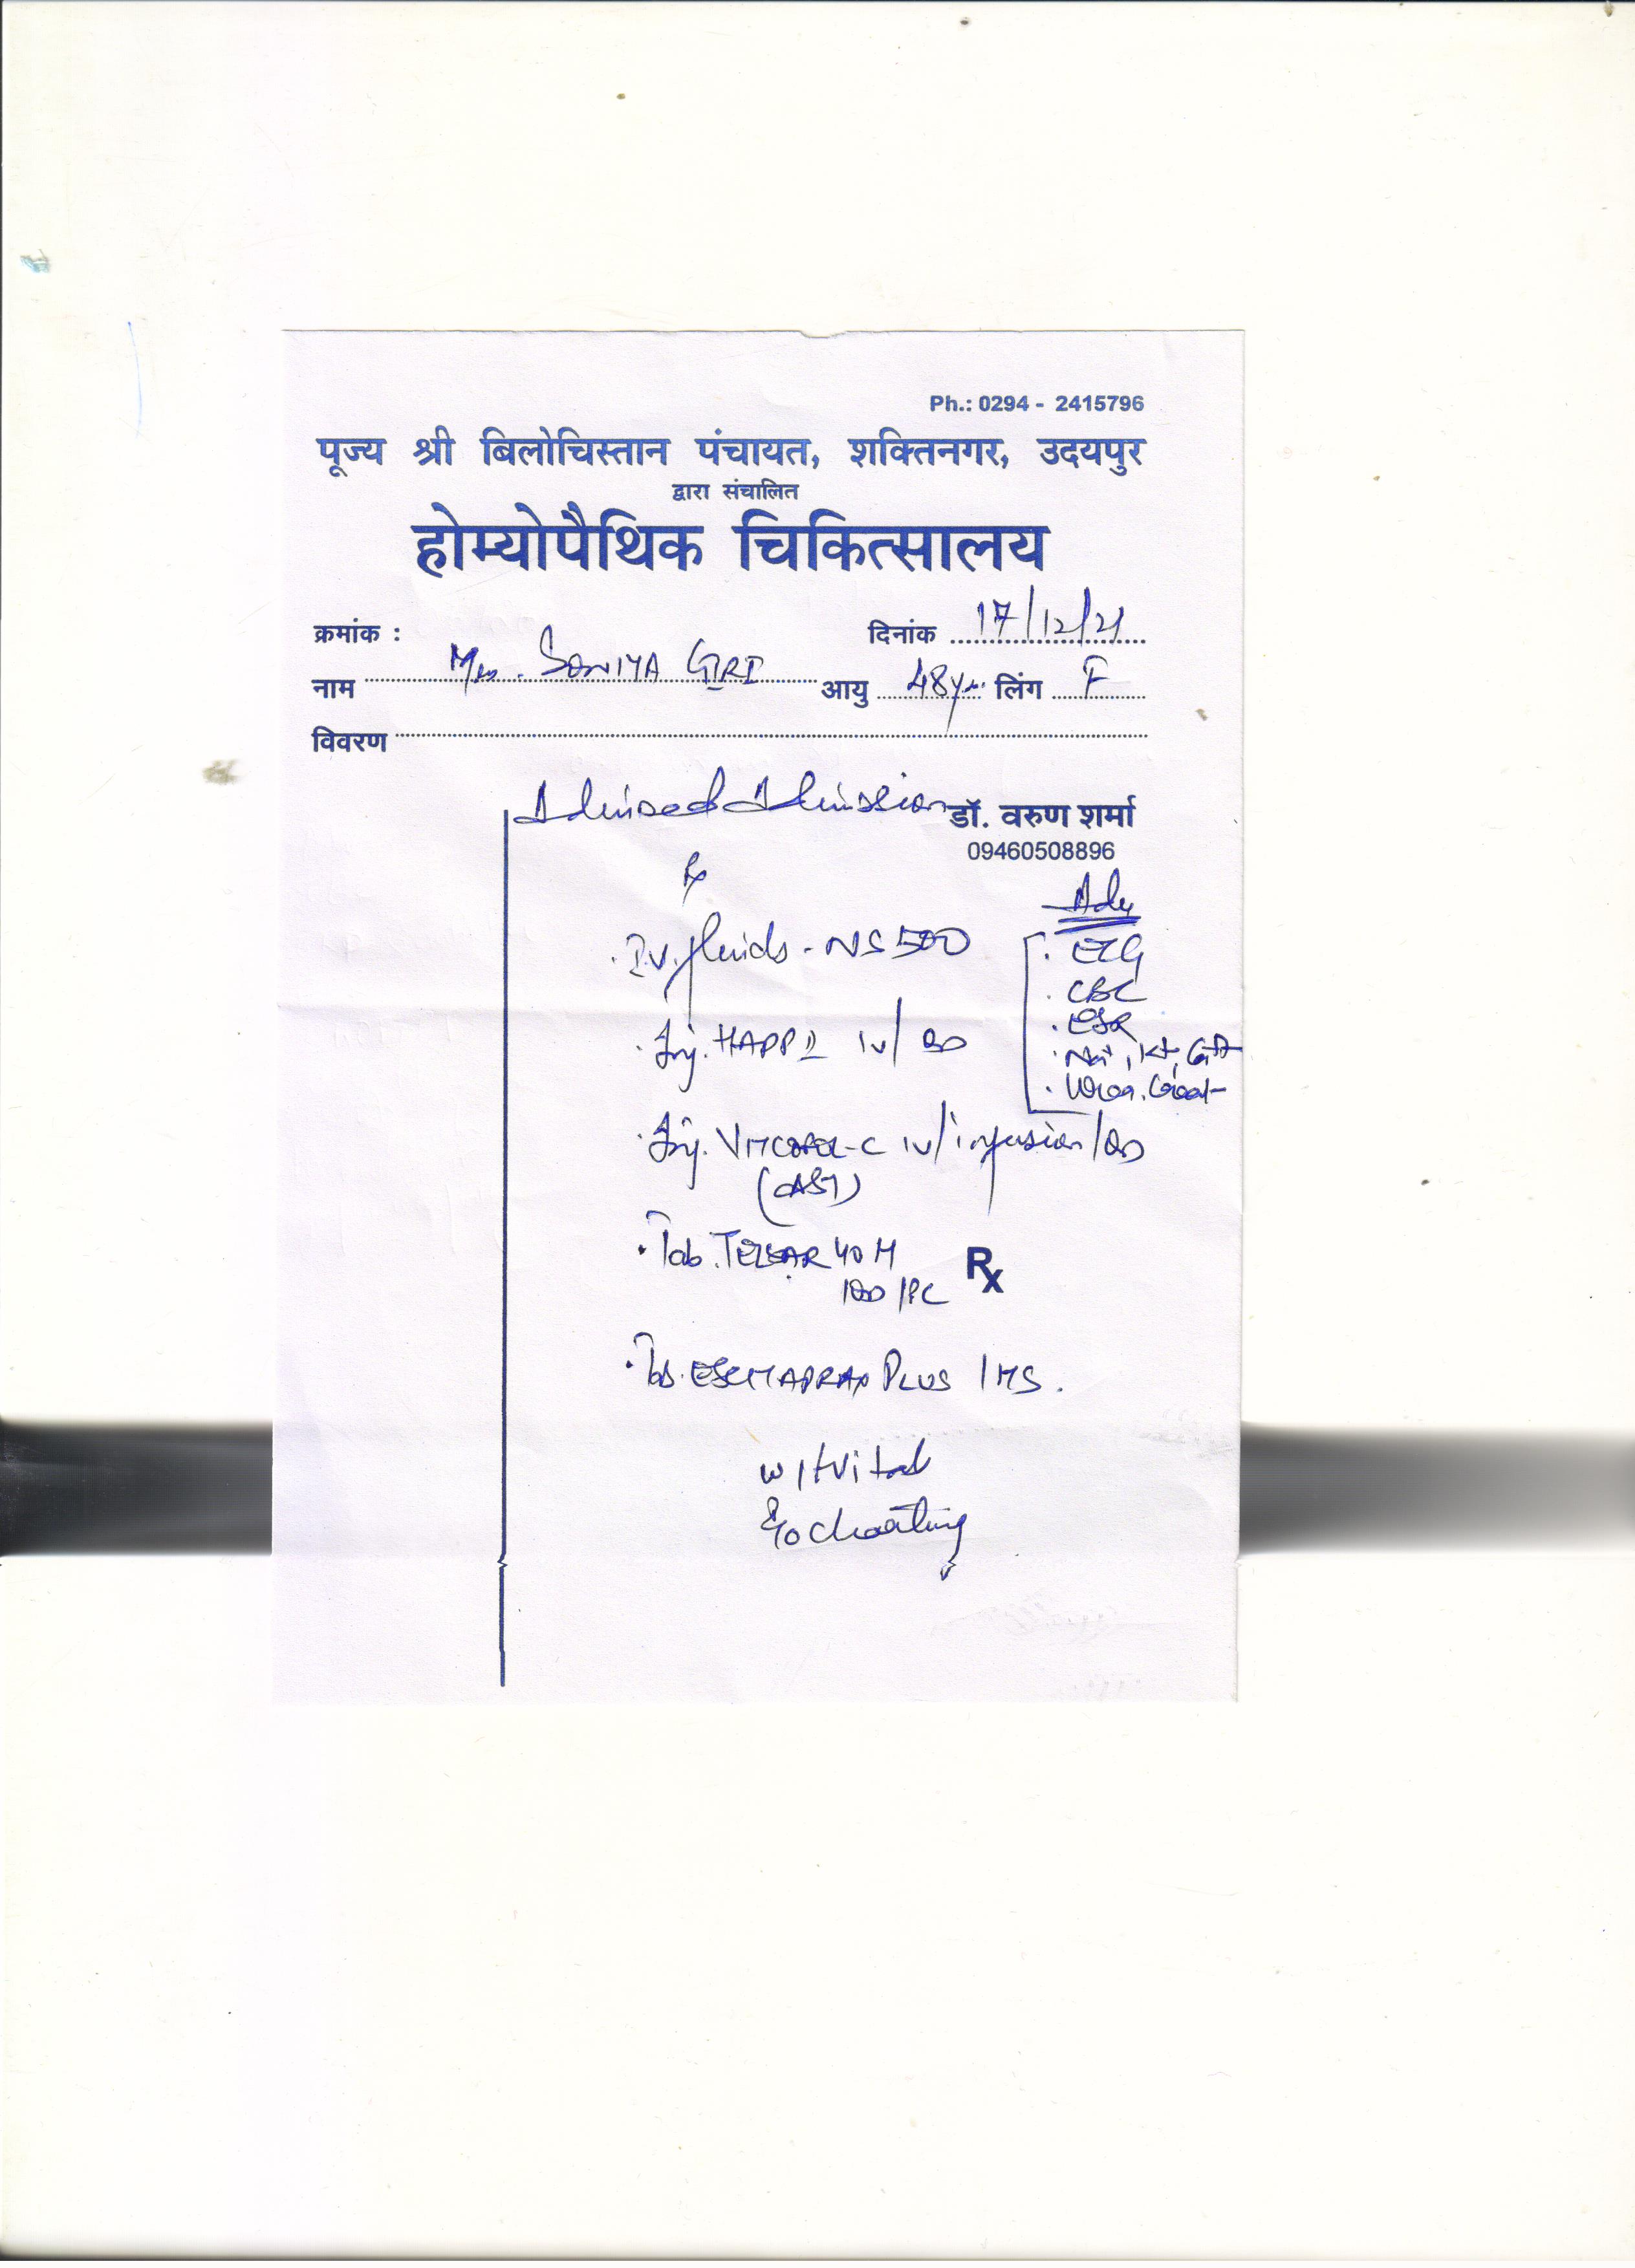 Ph.: 0294 - 2415796
पूज्य श्री बिलोचिस्तान पंचायत, शक्तिनगर, उदयपुर
द्वारा संचालित
होम्योपैथिक चिकित्सालय
क्रमांक : दिनांक 17/12/21
नाम Mrs. SONIYA GIRI आयु 48yrs लिंग F
विवरण
Advised Admission
डॉ. वरुण शर्मा
09460508896
Rx
Adv
. I.V. fluids - NS 500
. ECG
. CBC
. ESR
. Inj. HAPPI IV/ BD
. Na+, K+,
. Urea. Creat
. Inj. -C IV/infusion/
(AST)
. Tab. TELSAR 40 H
/PC
Rx
. Tab. PLUS 1 HS.
w/f vital
I/o charting